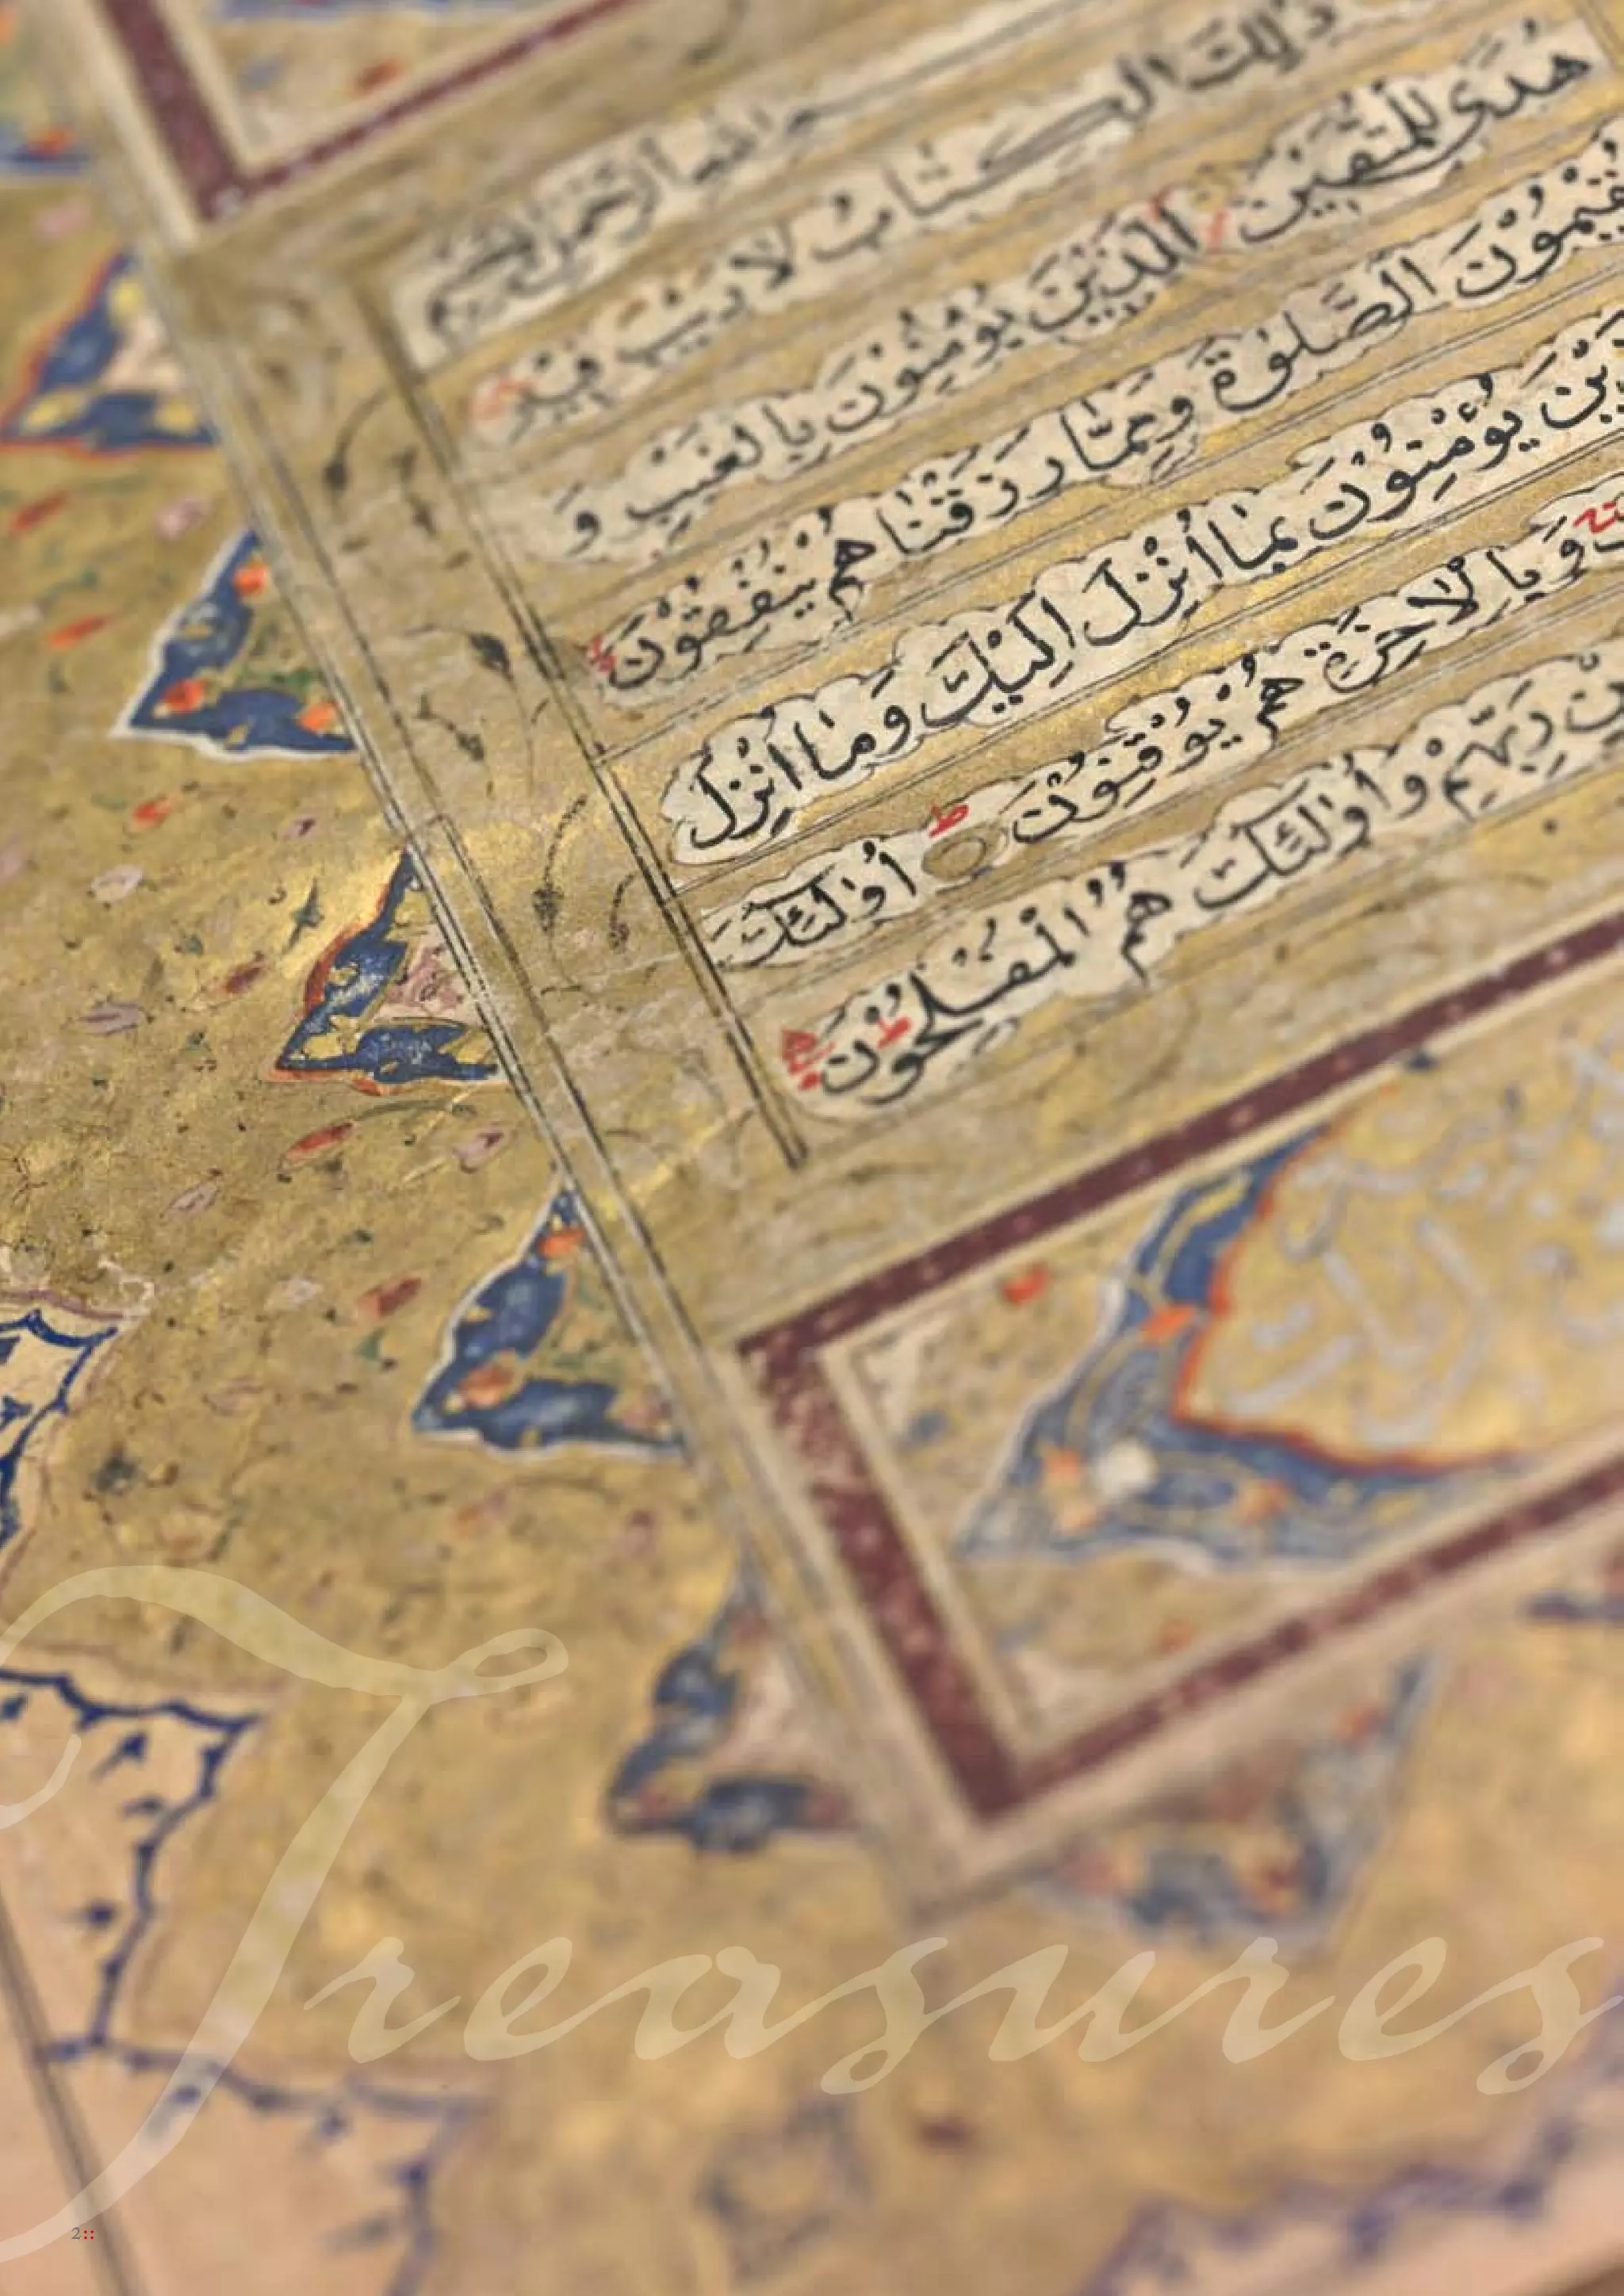 بسم الله الرحمن الرحيم
ذٰلِكَ الْكِتَابُ لَا رَيْبَ فِيْهِ
هُدًى لِلْمُتَّقِيْنَ الَّذِيْنَ يُؤْمِنُوْنَ بِالْغَيْبِ وَ
يُقِيْمُوْنَ الصَّلٰوةَ وَمِمَّا رَزَقْنَا هُمْ يُنْفِقُوْنَ ط
يُؤْمِنُوْنَ بِمَا اُنْزِلَ اِلَيْكَ وَمَا اُنْزِلَ
وَ بِالْاٰخِرَةِ هُمْ يُوْقِنُوْنَ ط اُولٰئِكَ
رَبِّهِمْ وَاُولٰئِكَ هُمُ الْمُفْلِحُوْنَ ط
Treasures
2::